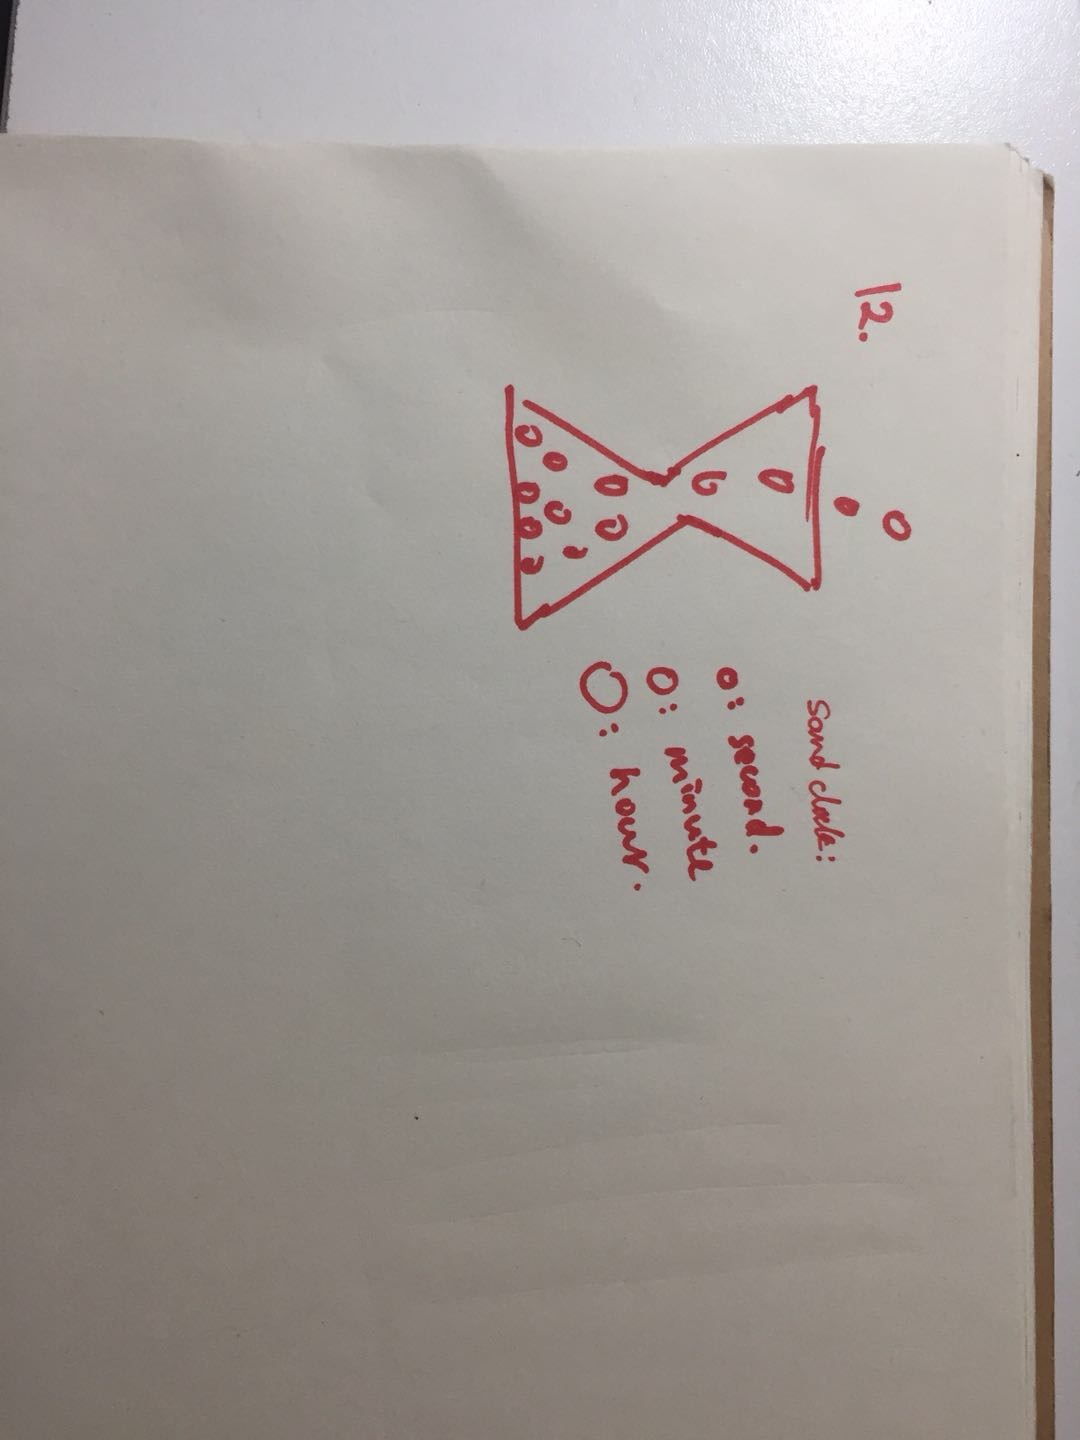 12.
Sand clock:
o: second.
O: minute
O: hour.